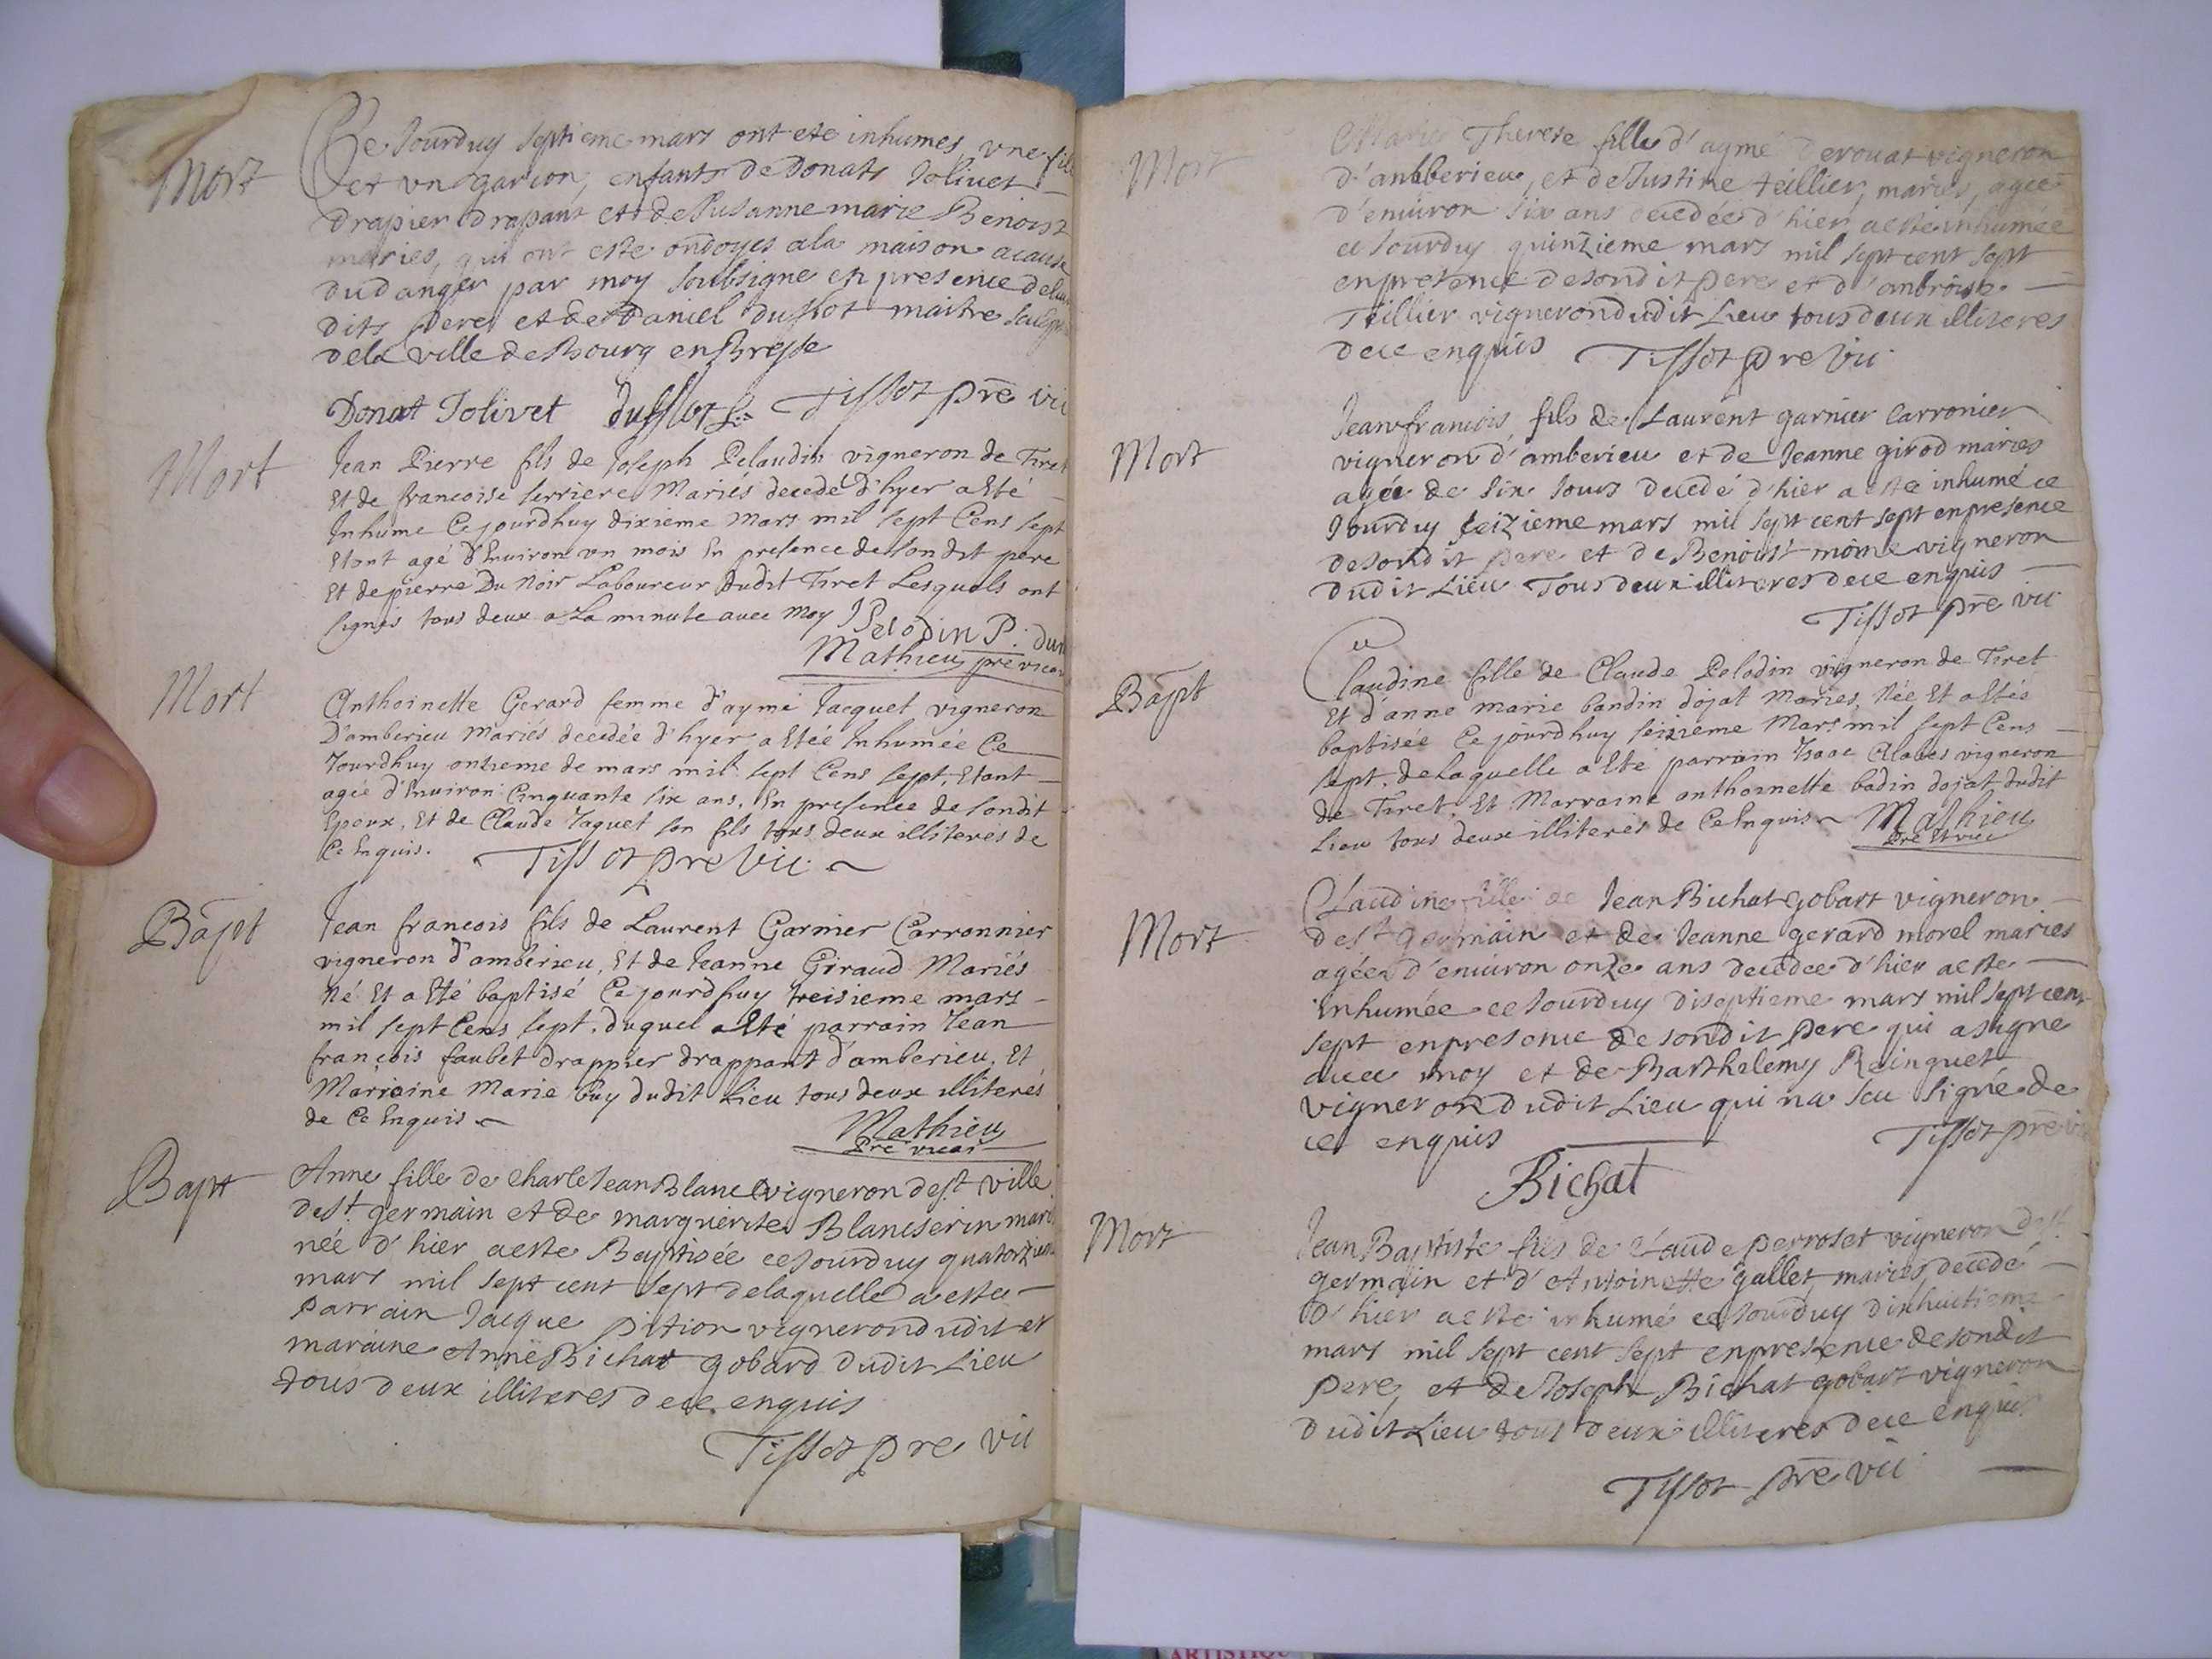 Mort
Ce Jourduy septieme mars ont ete inhumes une fille
et un garcon, enfants de Donats Jolivet
drapier drapant et de Susanne marie Benoist
maries, qui ont este ondoyes a la maison a cause
du danger par moy soubsigne en presence de
dits pere et de Daniel dussot maitre
de la ville de Bourg en Bresse
Donat Jolivet dussot Tissot pre vic
Mort
Jean Pierre fils de Joseph Pelaudin vigneron de Tiret
Et de francoise serriere Mariés decedé d'hyer a Eté
Inhume Ce jourdhuy dixieme Mars mil sept Cens sept
Etant agé d'Environ un mois En presence de son dit pere
Et de pierre Du Noir Laboureur dudit Tiret Lesquels ont
signés tous deux a La minute avec moy J Pelodin P. dun
Mathieu pre vicai
Mort
Anthoinette Gerard femme d'aymé Jacquet vigneron
D'amberieu Mariés decedée d'hyer a Etée Inhumée Ce
Jourdhuy onzieme de mars mil sept Cens sept. Etant
agée d'Environ Cinquante six ans. En presence de sondit
Epoux, Et de Claude Jaquet son fils tous deux illiteres de
Ce Enquis. Tissot pre vic
Bapt
Jean francois fils de Laurent Garnier Carronnier
vigneron d'amberieu, Et de Jeanne Giraud Mariés
Né Et a Eté baptisé Ce jourdhuy treisieme mars
mil sept Cens sept. duquel a Eté parrain Jean
françois faubet drappier drappant d'amberieu, Et
Marraine Marie buy dudit Lieu tous deux illiterés
de Ce Enquis
Mathieu
Pre vicai
Bapt
Anne fille de Charle Jean Blanc vigneron de st ville
de st germain et de marguerite Blancserin mari
née d'hier a este Baptisée ce Jourduy quatorzieme
mars mil sept cent sept de laquelle a este
parrain Jacque pition vigneron dudit et
maraine Anne Bichat gobard dudit Lieu
tous deux illiteres de ce enquis
Tissot pre vic
Mort
Marie Therese fille d'aymé Derouat vigneron
d'ambberieu, et de Justine teillier, maries, agée
d'environ six ans decedée d'hier a este inhumée
ce Jourduy quinzieme mars mil sept cent sept
en presence de sondit pere et d'ambroise
Tillier vigneron dudit Lieu tous deux illiteres
de ce enquis Tissot pre vic
Mort
Jean francois fils de Laurent garnier Carronier
vigneron d'amberieu et de Jeanne girod maries
agée de six Jours decedé d'hier a este inhumé ce
Jourduy seizieme mars mil sept cent sept en presence
de sondit pere et de Benoist môine vigneron
dudit Lieu Tous deux illiteres de ce enquis
Tissot pre vic
Bapt
Claudine fille de Claude Pelodin vigneron de Tiret
Et d'anne marie baudin dojat Mariés, Née Et a Etés
baptisée Ce jourdhuy seizieme Mars mil sept Cens
sept. de Laquelle a Eté parrain Isaac vigneron
de Tiret, Et Marraine anthoinette badin dojat dudit
Lieu tous deux illiterés de Ce Enquis Mathieu
Pre Et vic
Mort
Claudine fille de Jean Bichat gobart vigneron
de st germain et de Jeanne gerard morel maries
agée d'environ onze ans decedee d'hier a este
inhumée ce Jourduy diseptieme mars mil sept cent
sept en presence de sondit pere qui a signe
avec moy et de Barthelemy Reinguet
vigneron dudit Lieu qui na seu signé de
ce enquis Tissot pre vic
Bichat
Mort
Jean Baptiste fils de Claude perroset vigneron de st
germain et d'Antoinette gallet, maries, decedé
d'hier a este inhumé ce Jourduy dixhuictieme
mars mil sept cent sept en presence de sondit
pere, et de Joseph Bichat gobart vigneron
dudit Lieu tous deux illiteres de ce enquis
Tissot pre vic
ARTISTIQU